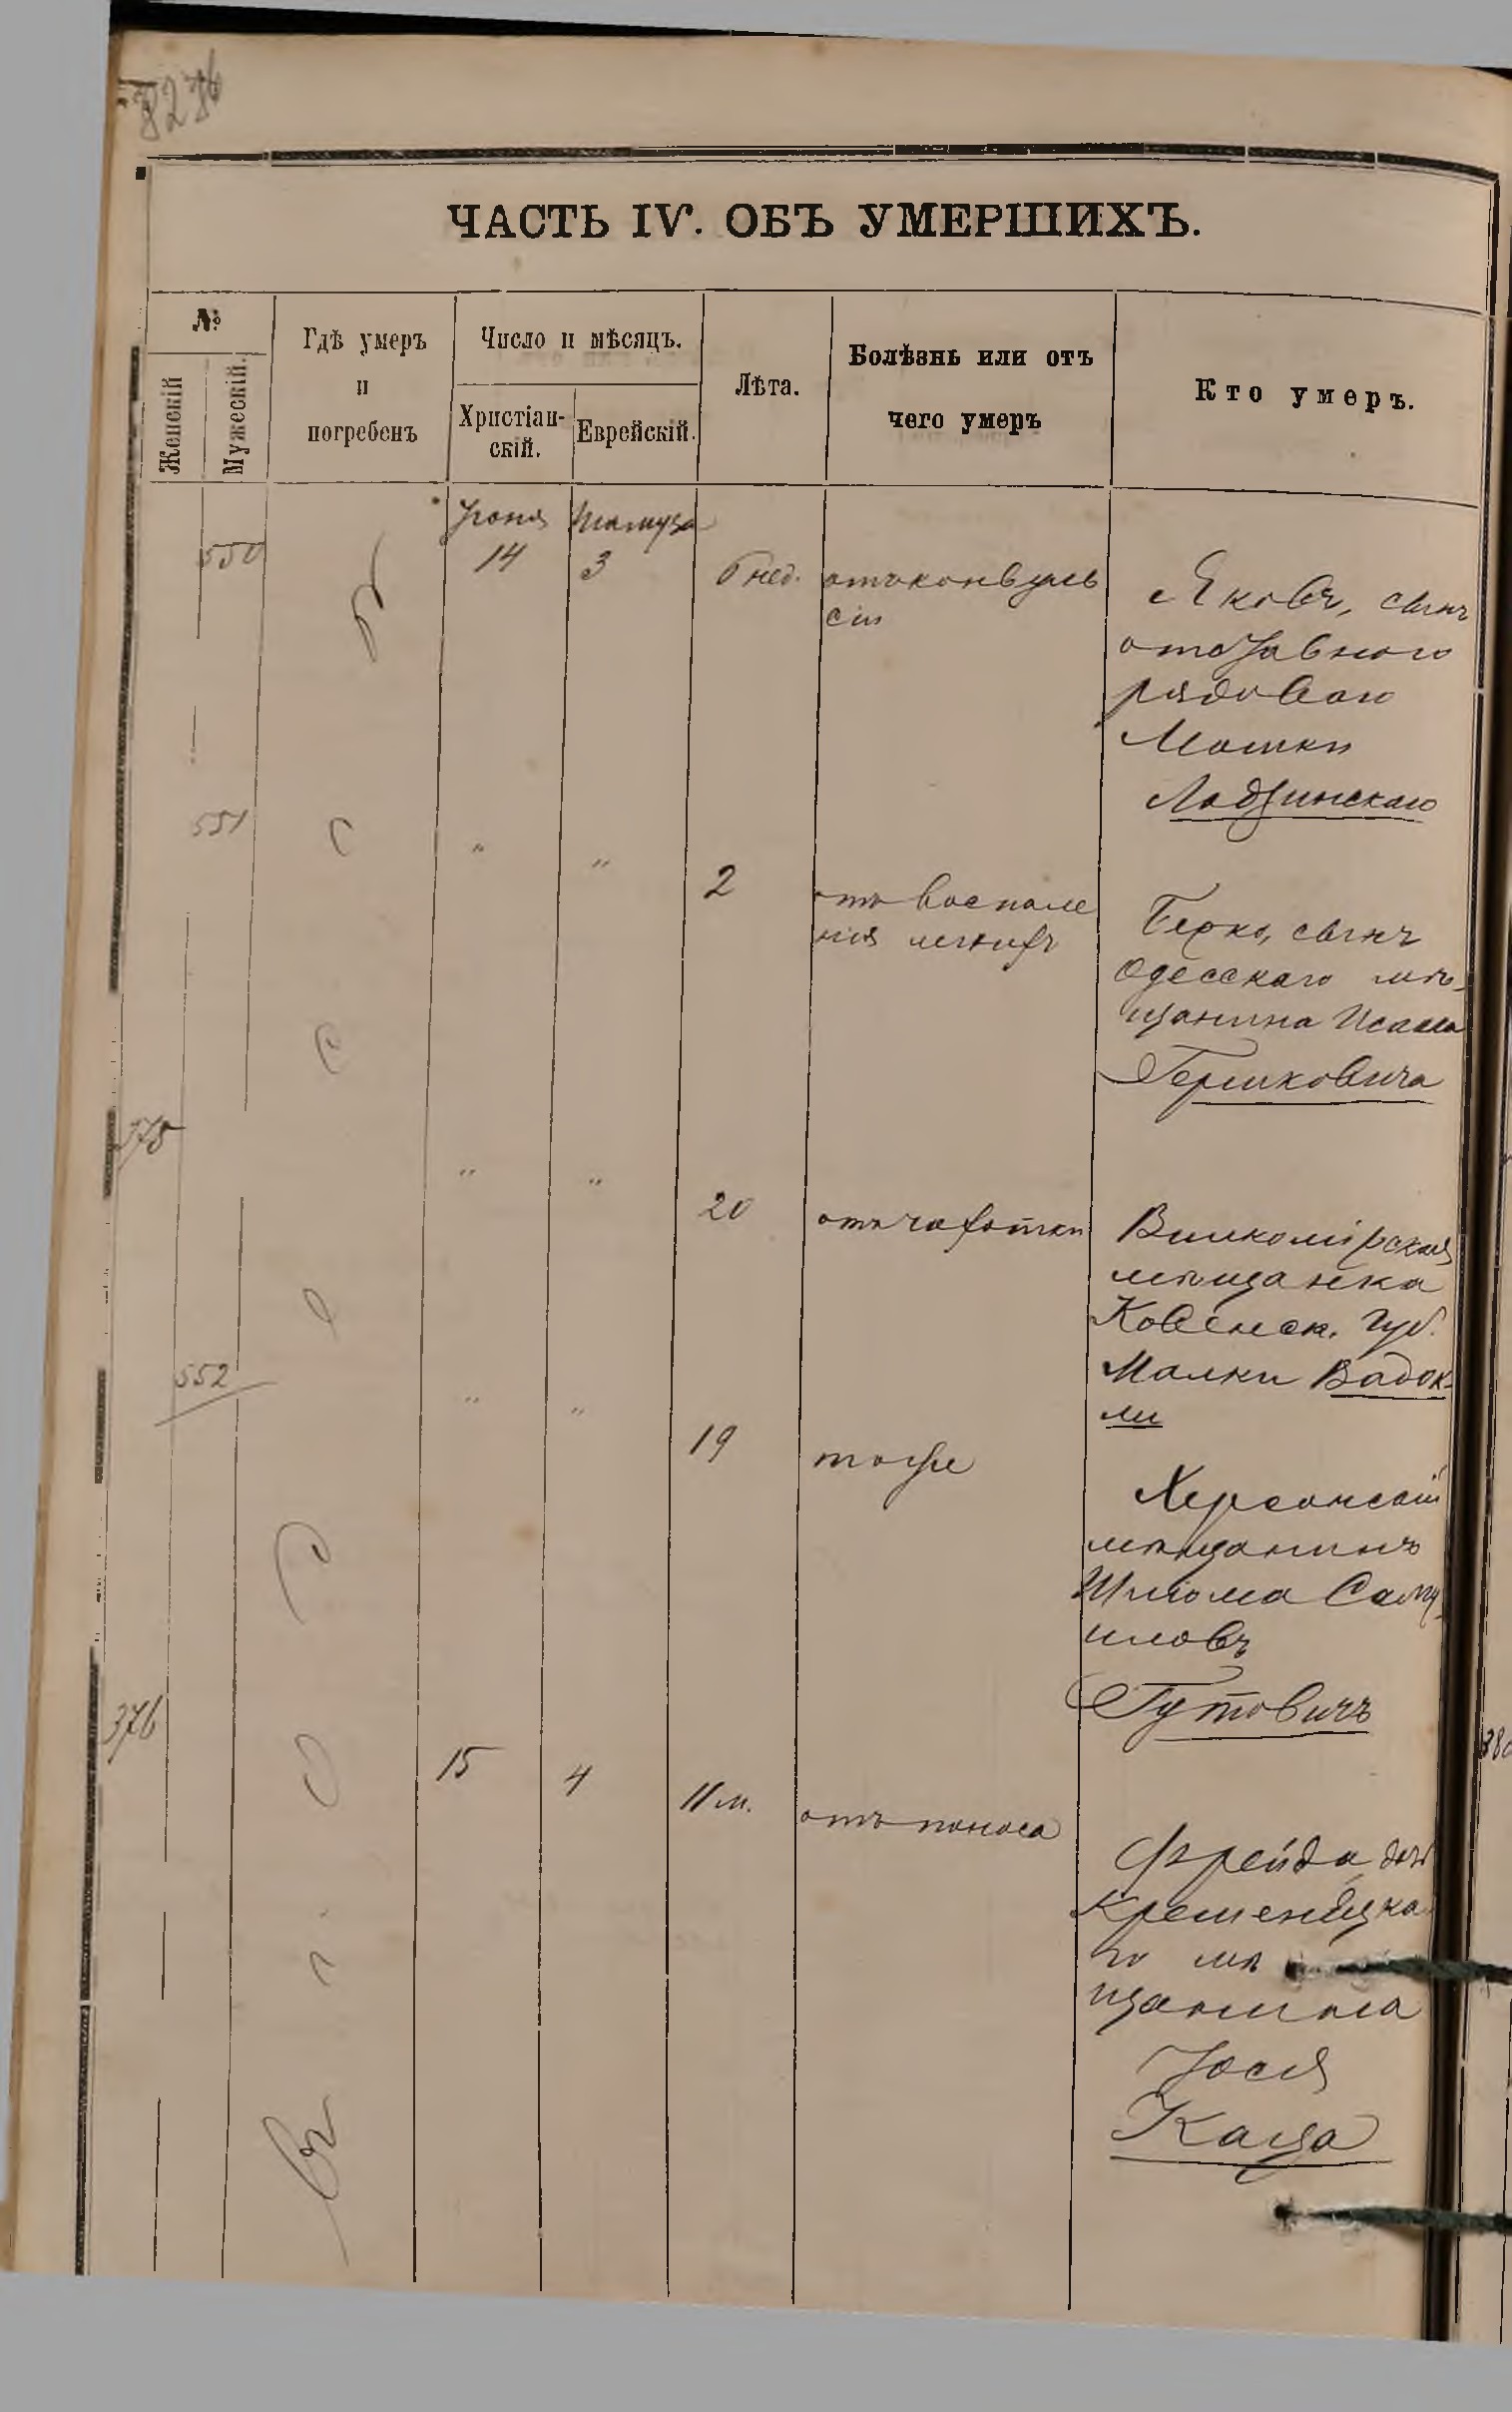 ЧАСТЬ IV. ОБЪ УМЕРШИХЪ.
№
Женскій
Мужескій.
Гдѣ умеръ
и
погребенъ
Число и мѣсяцъ.
Христіан-
скій.
Еврейскій.
Лѣта.
Болѣзнь или отъ
чего умеръ
Кто умеръ.
Іюня Тамуза
550 14 3 6 нед. отъ конвуль
сіи
Яковъ, сынъ
отставного
рядоваго
Мошки
Лодзинскаго
551 " " 2 отъ воспале
нія легкихъ
Берко, сынъ
Одесскаго мѣ-
щанина Исаака
Гершковича
375 " " 20 отъ чахотки
Вилкомірская
мѣщанка
Ковенск. Губ.
Малки Вадок-
ли
552 " " 19 тоже
Херсонскій
мѣщанинъ
Шліома Саму-
иловъ
Гутовичъ
376 15 4 11 м. отъ поноса
Фрейда, дочь
Кременецка
го мѣ
щанина
Іося
Каца